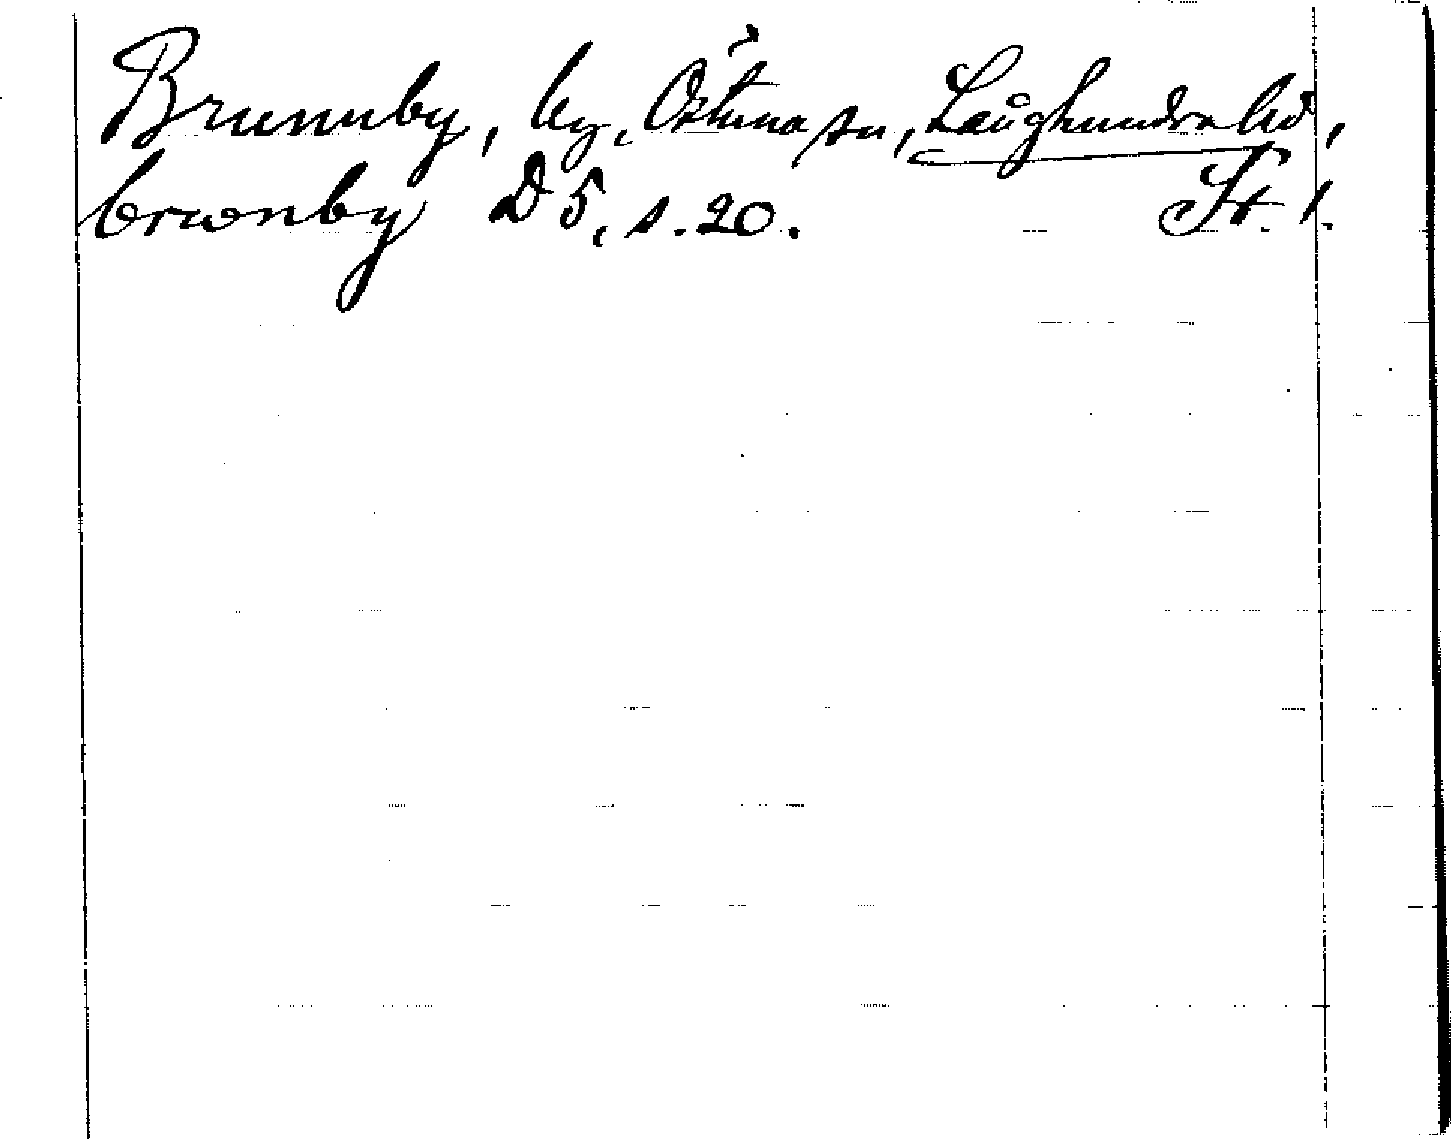 Brunnby, by, Östuna sn, Långhundra hd,
brωnby D 5, s. 20. St. 1.